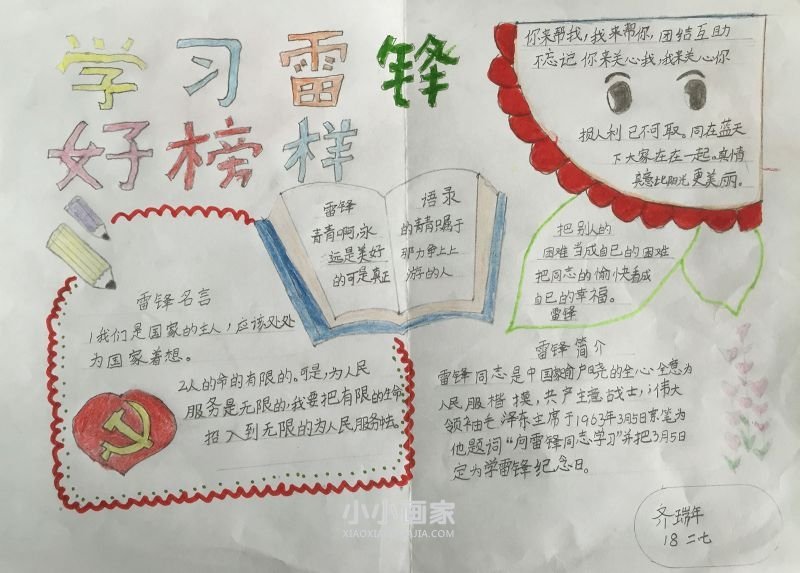 学习雷锋
好榜样
你来帮我,我来帮你,团结互助
不忘记你来关心我,我来关心你
损人利己不可取。同在蓝天
下大家在在一起。真情
实意比阳光更美丽。
雷锋
青青啊,永
远是美好
的可是真正
悟录
的青青只属于
那力争上上
游的人
把别人的
困难当成自己的困难
把同志的愉快看成
自己的幸福。
雷锋
雷锋名言
1我们是国家的主人,应该处处
为国家着想。
2人的命的有限的。可是,为人民
服务是无限的,我要把有限的生命
招入到无限的为人民服务去。
雷锋简介
雷锋同志是中国家俞户晓的全心全意为
人民服楷摸,共产主意战士,伟大
领袖毛泽东主席于1963年3月5日亲笔为
他题词“向雷锋同志学习”并把3月5日
定为学雷锋纪念日。
齐瑞年
18 二七
小小画家
XIAOXIAOHUAJIA.COM